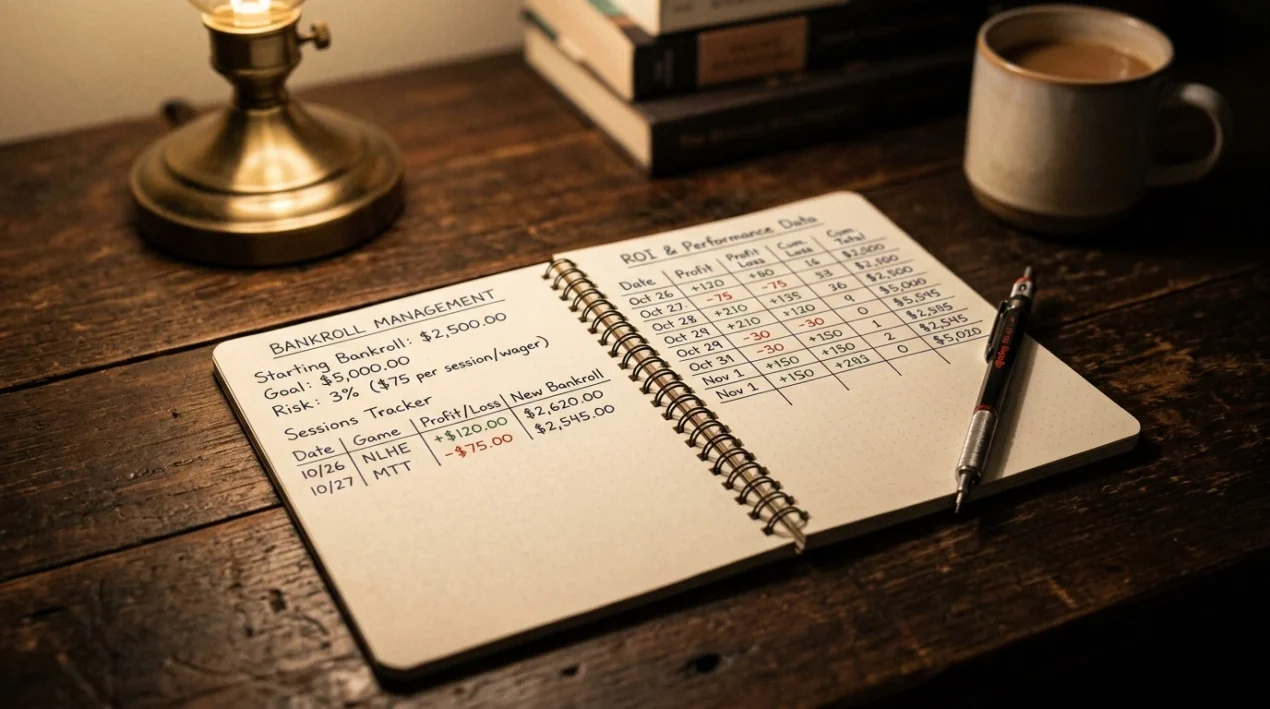 BANKROLL MANAGEMENT
Starting Bankroll: $2,500.00
Goal: $5,000.00
Risk: 3% ($75 per session/wager)
Sessions Tracker
Date Game Profit/Loss New Bankroll
10/26 NLHE +$120.00 $2,620.00
10/27 MTT -$75.00 $2,545.00
ROI & Performance Data
Date Profit Profit Loss Cum. Loss Cum. Total
Oct 26 +120 +60 16 $2,000
Oct 27 -75 -75 33 $2,500
Oct 28 +210 +135 36 $5,000
Oct 29 +210 +120 9 $5,545
Oct 29 -30 -30 0 $2,585
Oct 31 -30 +150 1 $2,545
Nov 1 +150 +150 2 $5,020
Nov 1 +150 +283 0